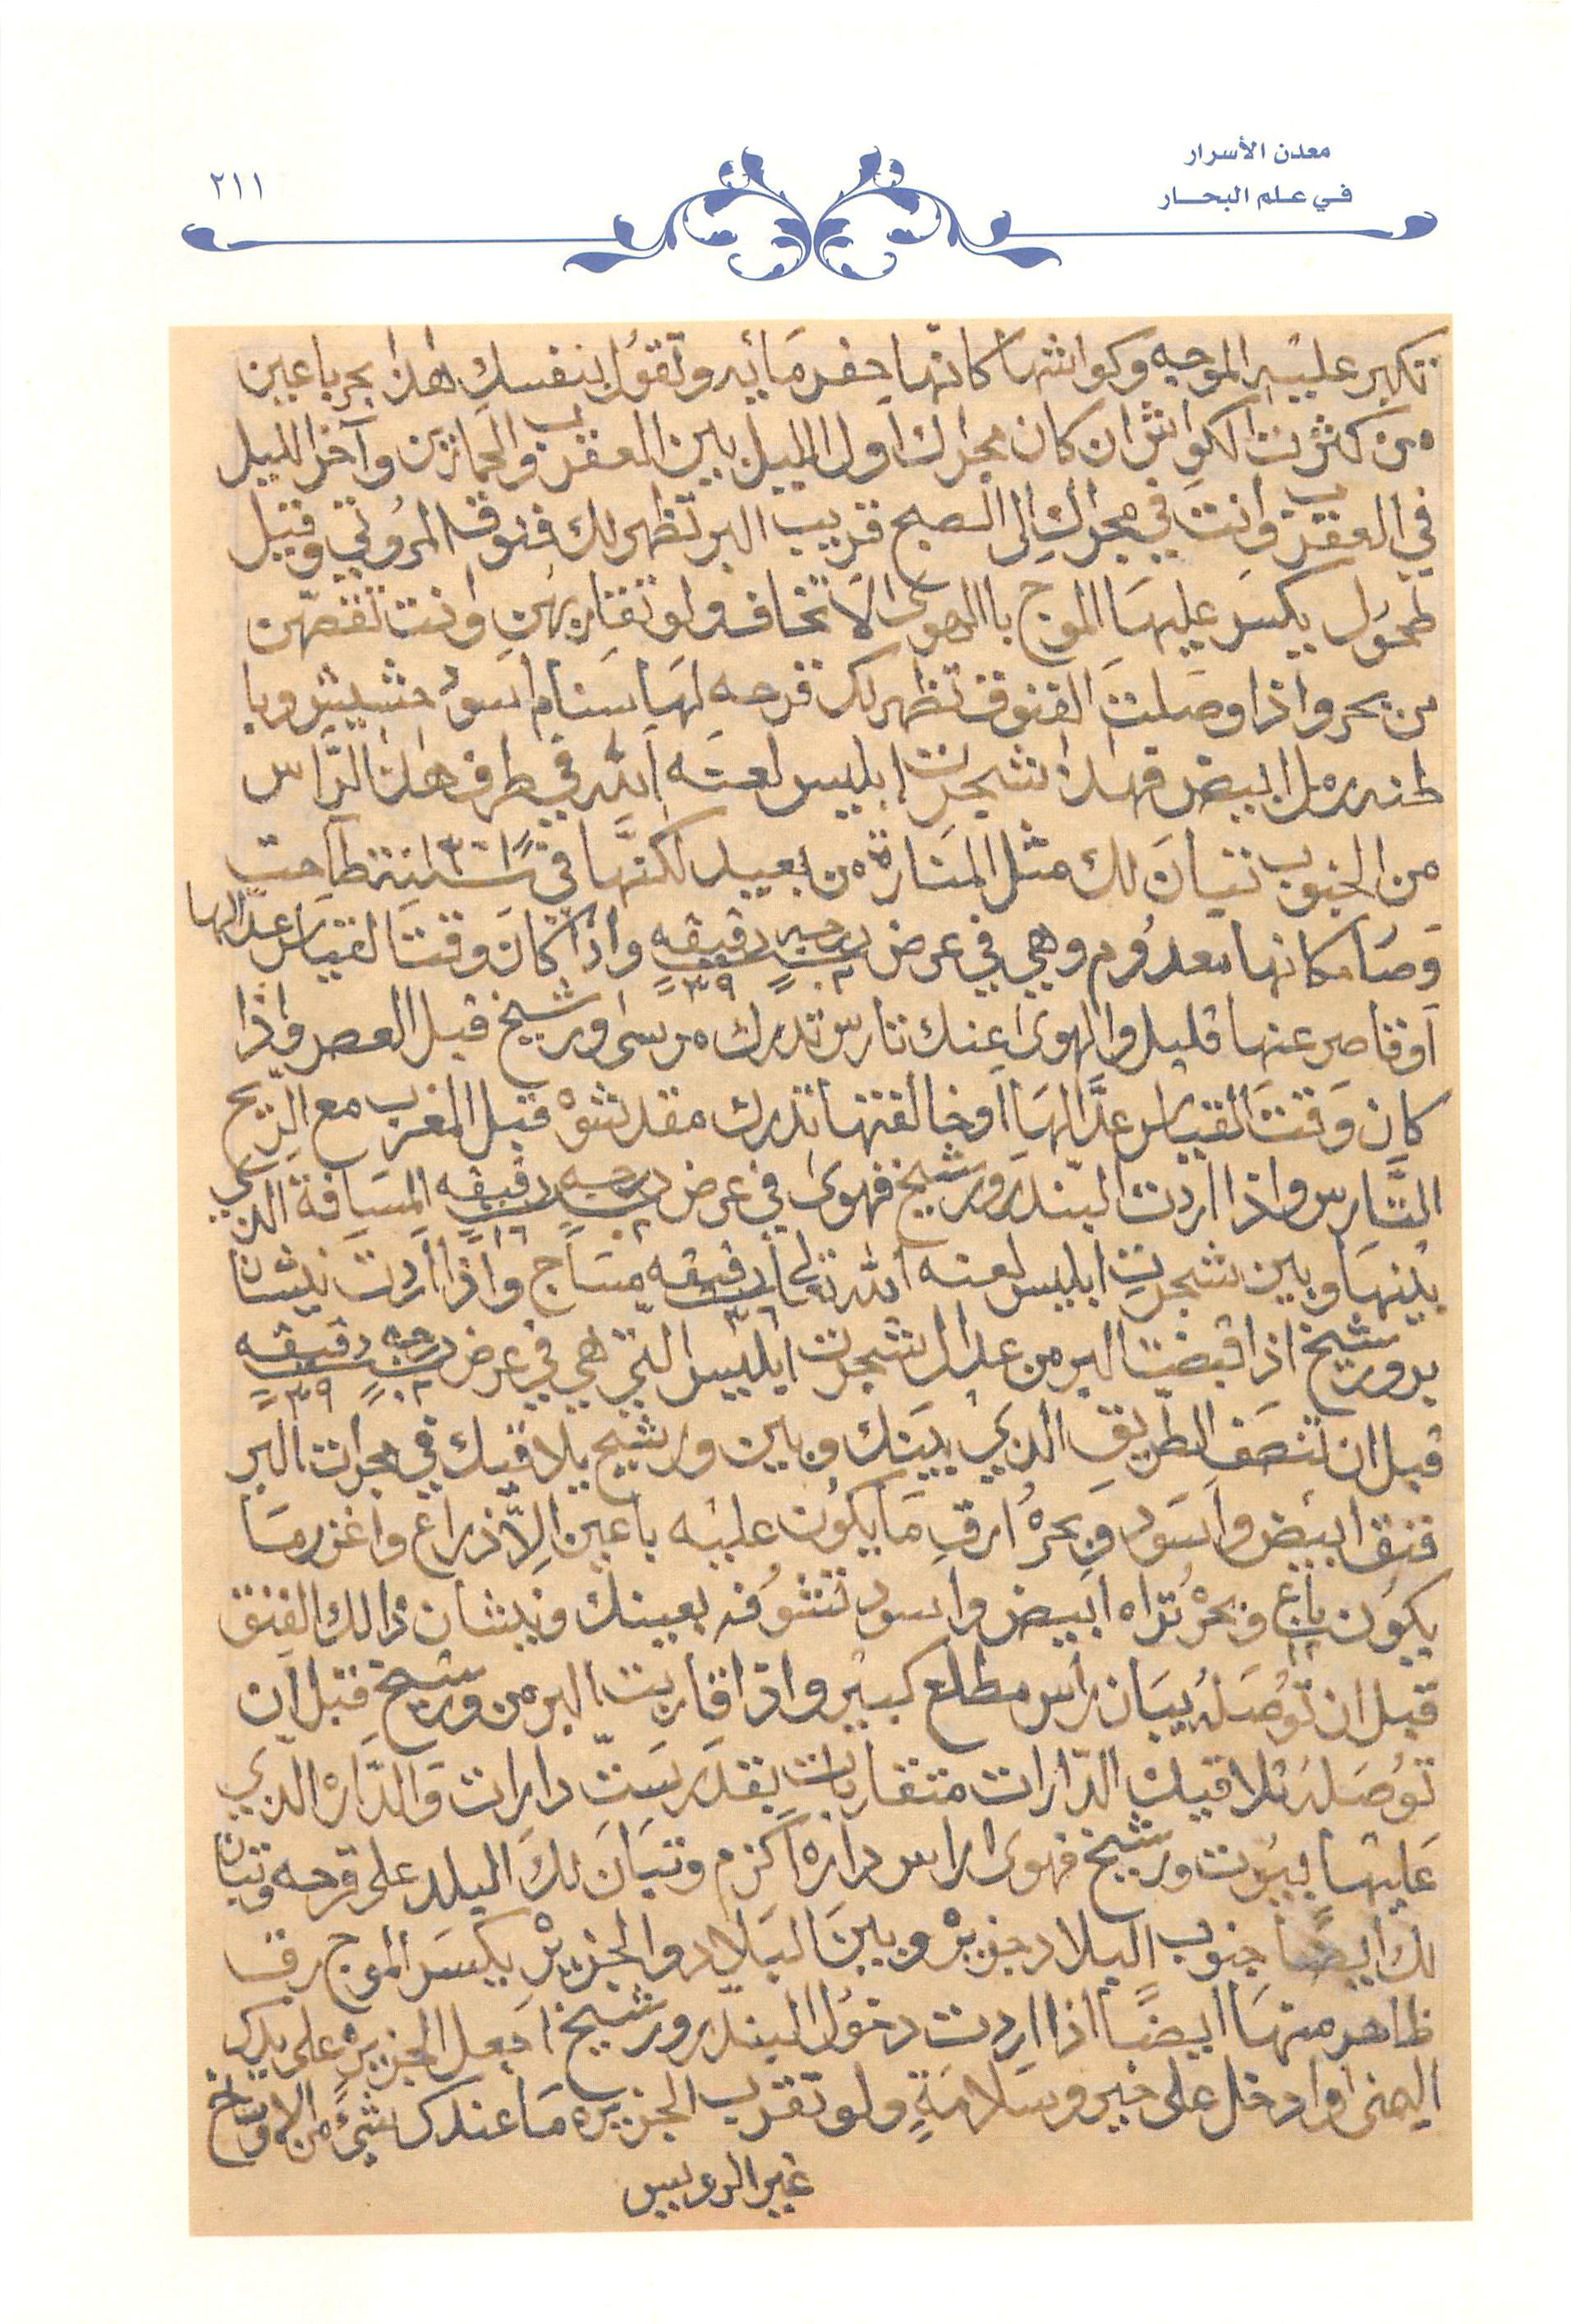 معدن الأسرار
في علم البحار
٢١١
تكبر عليه الموجه وكواشها كانها حفر مائيه وتقول بنفسك هذا بحر باعين
من كثرت الكواش ان كان مجراك اول الليل بين العقرب والحمارين وآخر الليل
في العقرب وانت في مجراك الى الصبح قريب البر تظهر لك فنوق المروتي وقيل
طحول يكسر عليها الموج باالهوى لا تخافه ولو تقاربهن وانت تقصهن
من بحر واذا وصلت الفنوق تظهر لك قرحه لها سنام اسود حشيش وبا
طنه رمل ابيض فهذا شجرت ابليس لعنه الله في طرف هذا الراس
من الجنوب تبان لك مثل المنارة من بعيد لكنها في سنة طاحت
وصا مكانها معدوم وهي في عرض درجه ٢٠ دقيقه ٣٩ واذا كان وقت القياس عدالها
او قاصر عنها قليل والهوى عنك تارس تدرك مرسى ورشيخ قبل العصر واذا
كان وقت القياس عدالها او خالفتها تدرك مقدشوه قبل المغرب مع الريح
التارس واذا اردت البندر ورشيخ فهوى في عرض درجه ٢٠ دقيقه ١٦ المسافة الذي
بينها وبين شجرت ابليس لعنه الله تعالى دقيقه ٣٦ مساج واذا اردت نيشان
بر ورشيخ اذا قبضت البر من عدال شجرت ابليس التي هي في عرض درجه ٢٠ دقيقه ٣٩
قبل ان تنصف الطريق الذي بينك وبين ورشيخ يلاقيك في مجرات البر
فنق ابيض واسود وبحره ارق ما يكون عليه باعين الا ذراع واغزر ما
يكون باع ١١ وبحره تراه ابيض واسود تشوفه بعينك ونيشان ذالك الفنق
قبل ان توصله يبان راس مطلع كبير واذا قاربت البر من ورشيخ قبل ان
توصله تلاقيك الدارات متقاربات بقدر ست دارات والداره الذي
عليها بيوت ورشيخ فهوى راس داره اكزم وتبان لك البلد على قرحه وتبان
لك ايضا جنوب البلاد جزيره وبين البلاد والجزيره يكسر الموج رق
ظاهر منها ايضا اذا اردت دخول البندر ورشيخ اجعل الجزيره على يدك
اليمنى وادخل على خير وسلامة ولو تقرب الجزيره ما عندك شئ من الاوساخ
غير الرويس